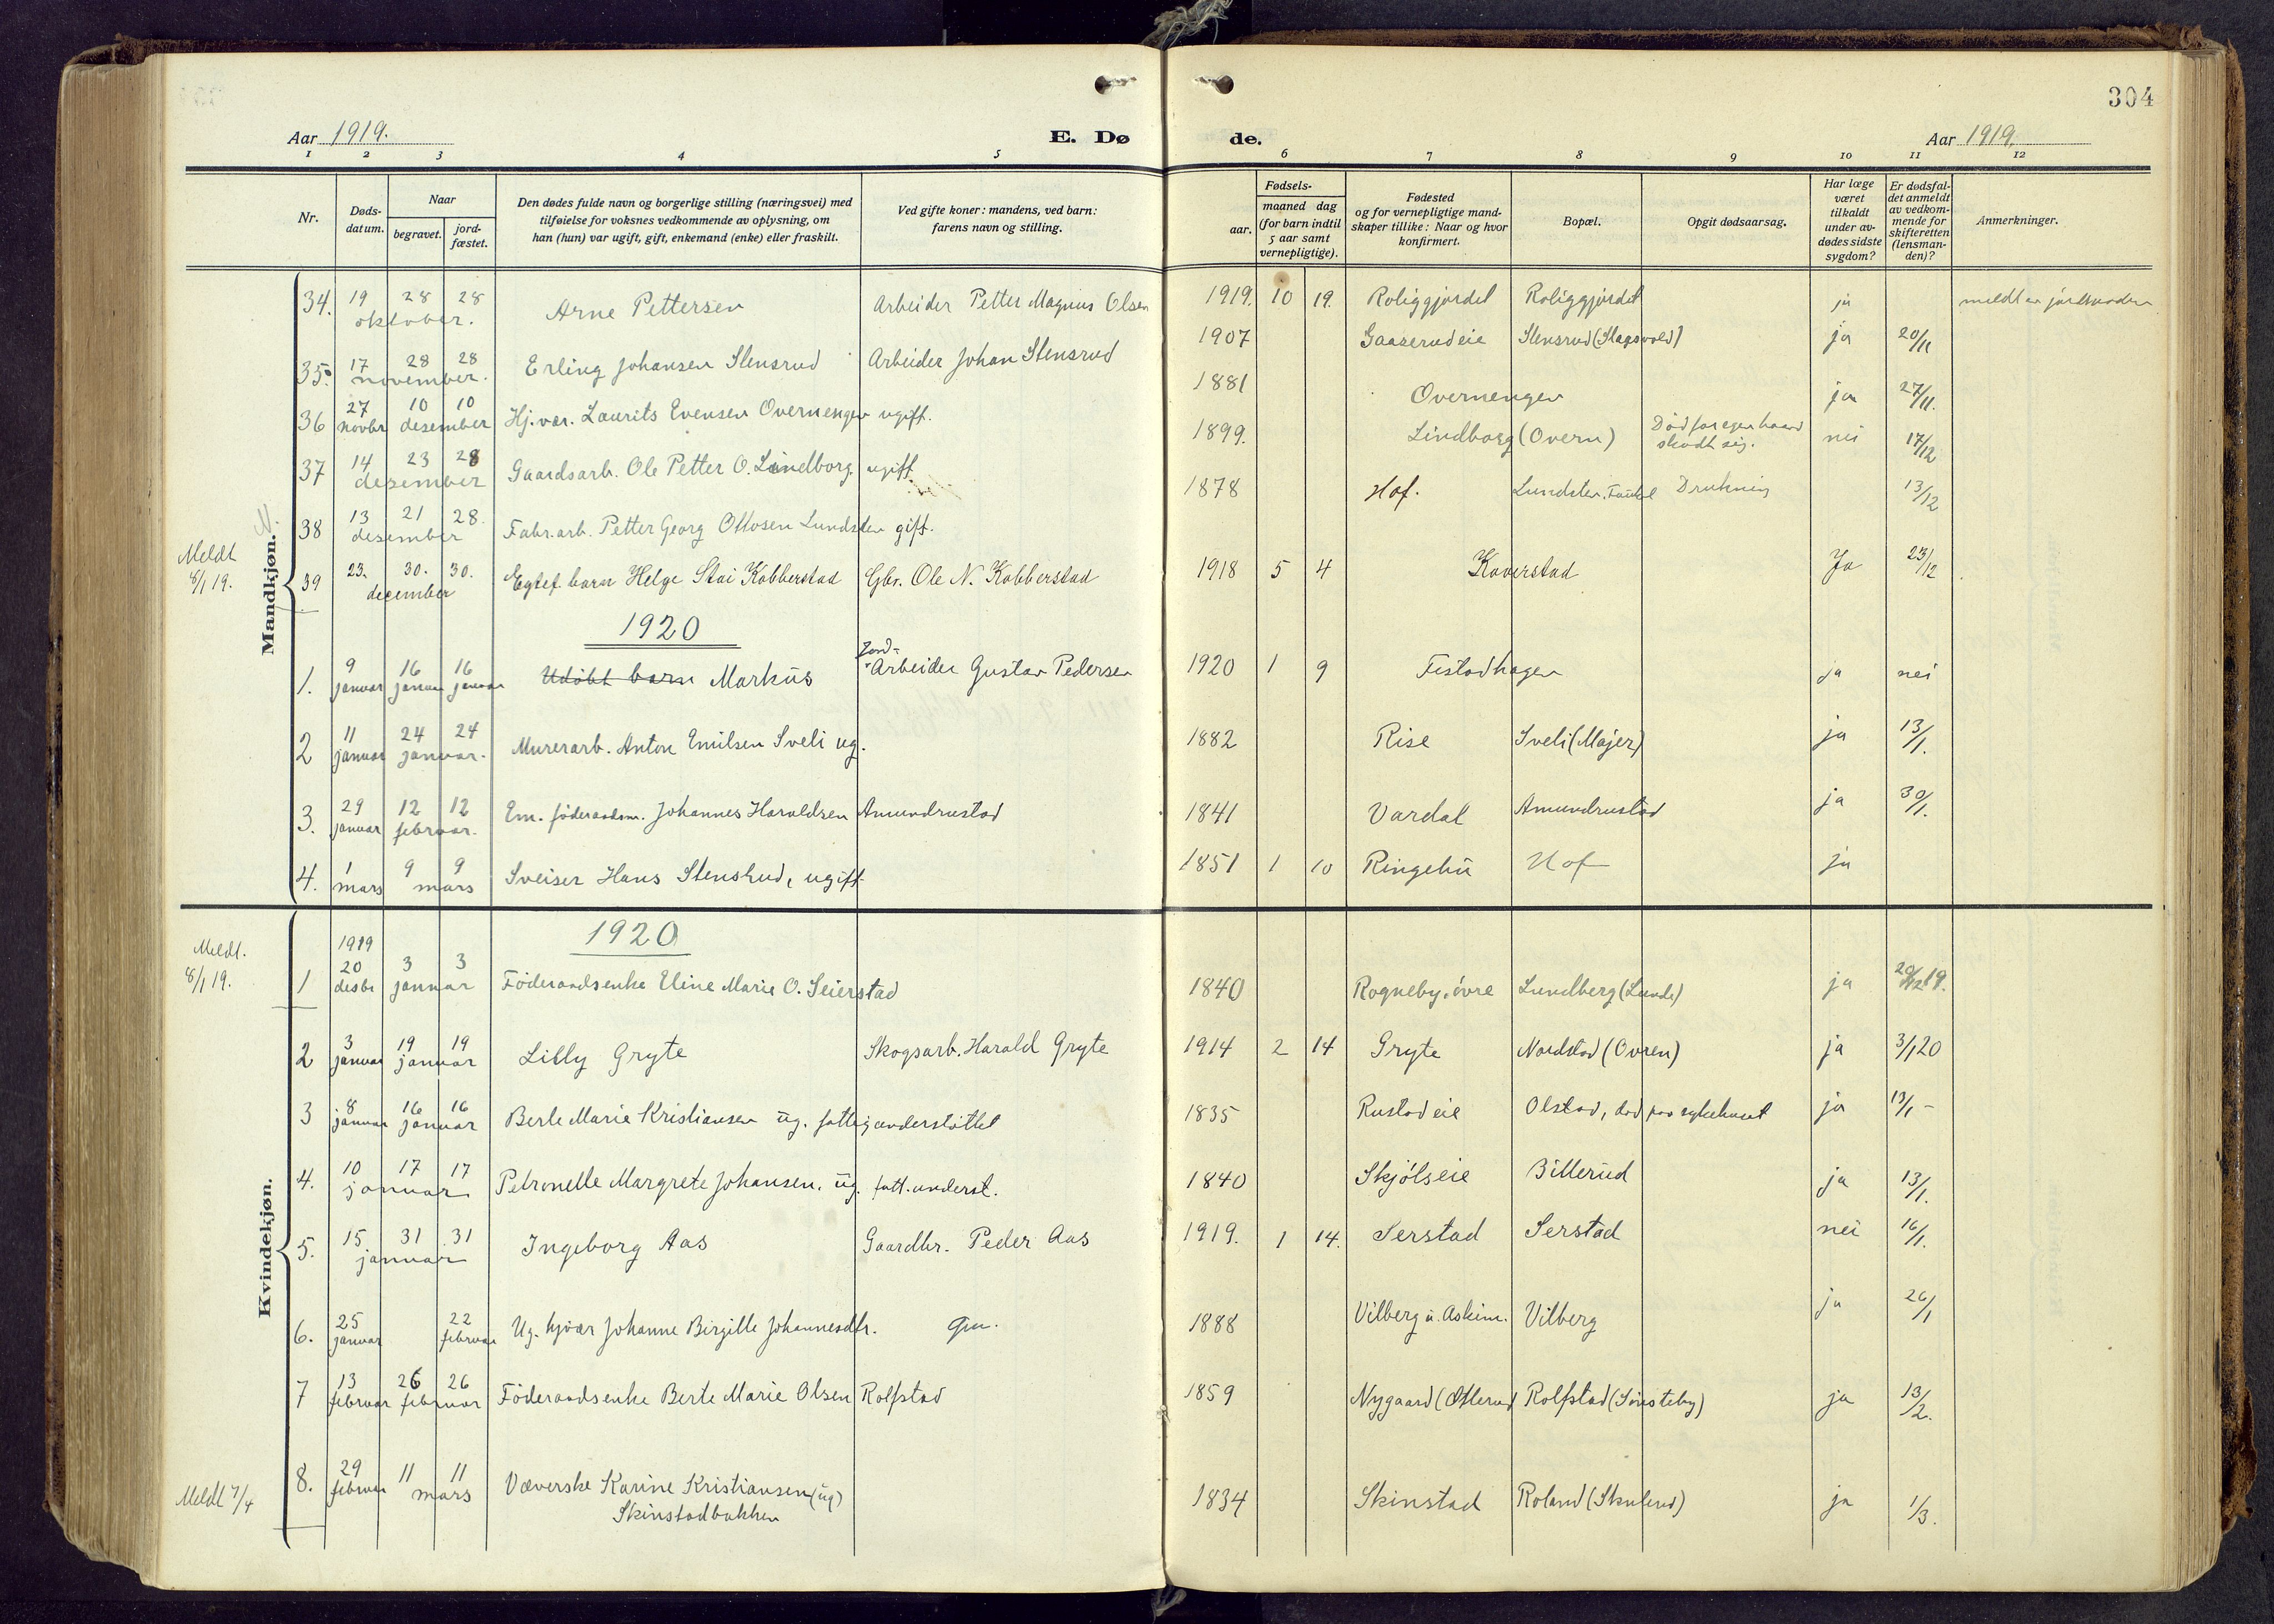 304
Aar 1919. E. Dø de. Aar 1919.
1 2 3 4 5 6 7 8 9 10 11 12
Nr.
Døds-
datum.
Naar
begravet.
jord-
fæstet.
Den dødes fulde navn og borgerlige stilling (næringsvei) med
tilføielse for voksnes vedkommende av oplysning, om
han (hun) var ugift, gift, enkemand (enke) eller fraskilt.
Ved gifte koner: mandens, ved barn:
farens navn og stilling.
Fødsels-
aar.
maaned dag
(for barn indtil
5 aar samt
vernepligtige).
Fødested
og for vernepligtige mand-
skaper tillike: Naar og hvor
konfirmert.
Bopæl.
Opgit dødsaarsag.
Har læge
været
tilkaldt
under av-
dødes sidste
sygdom?
Er dødsfal-
det anmeldt
av vedkom-
mende for
skifteretten
(lensman-
den)?
Anmerkninger.
Mandkjøn.
34. 19 28 28 oktober. Arne Pettersen Arbeider Petter Magnus Olsen 1919. 10 19. Roliggjordet Roliggjordet ja meldt av jordmoderen
35. 17 28 28 november. Erling Johansen Stensrud Arbeider Johan Stensrud 1907 Gaaserudeie Stensrud (Slagsvold) ja 20/11
36 27 novbr 10 10 desember Hj.var. Laurits Evensen Overnengen ugift. 1881 Overnengen ja 27/11.
37 14 23 28 desember Gaardsarb. Ole Petter O. Lindborg. ugift 1899. Lindborg (Overn) Død for egen haand skudt sig. nei 17/12
38 13 21 28. desember Fabr.arb. Petter Georg Ottosen Lundsten gift. 1878 Hof. Lundsten. Drukning 13/12
Meldt
8/1 19.
39 23. 30. 30. december Egtef. barn Helge Stai Kobberstad Gbr. Ole N. Kobberstad 1918 5 4 Koverstad Ja 23/12
1920
1. 9 januar 16 januar 16 januar Udøbt barn Markus Jord-Arbeider Gustav Pedersen 1920 1 9 Fistadhagen ja nei
2 11 januar 24 24 januar. Murerarb. Anton Emilsen Sveli ug. 1882 Rise Sveli (Majer) ja 13/1.
3. 29 januar 12 12 februar. Em. føderaadsm. Johannes Haraldsen Amundrustad 1841 Vardal Amundrustad ja 30/1.
4. 1 mars 9 9 mars Sveiser Hans Stensrud, ugift 1851 1 10 Ringebu Hof ja
Kvindekjøn.
1920
Meldt.
8/1 19.
1 1919 20 desbr 3 3 januar Føderaadsenke Eline Marie O. Seierstad 1840 Rogneby, øvre Lundberg (Lunde) ja 20/12 19.
2 3 januar 19 19 januar Lilly Gryte Skogsarb. Harald Gryte 1914 2 14 Gryte Nordstad (Ovren) ja 3/1 20
3 8 januar 16 16 januar Berte Marie Kristiansen ug. fattigunderstøttet 1835 Rustadeie Olstad, død paa sykehuset ja 13/1 -
4. 10 17 17 januar Petronelle Margrete Johansen. ug. fatt. underst. 1840 Skjølseie Billerud ja 13/1.
5. 15 31 31 januar Ingeborg Aas Gaardbr. Peder Aas 1919. 1 14. Serstad Serstad nei 16/1.
6. 25 januar 22 februar Ug. hjvar Johanne Birgitte Johannesdtr. Gm. 1888 Vilberg u. Askim. Vilberg ja 26/1
7 13 februar 26 26 februar Føderaadsenke Berte Marie Olsen Rolfstad 1859 Nygaard (Ollerud Rolfstad (Sønsteby) ja 13/2.
Meldt 7/4
8. 29 februar 11 11 mars Væverske Karine Kristiansen (ug)
Skinstadbakken 1834 Skinstad Roland (Skulerud) ja 1/3.